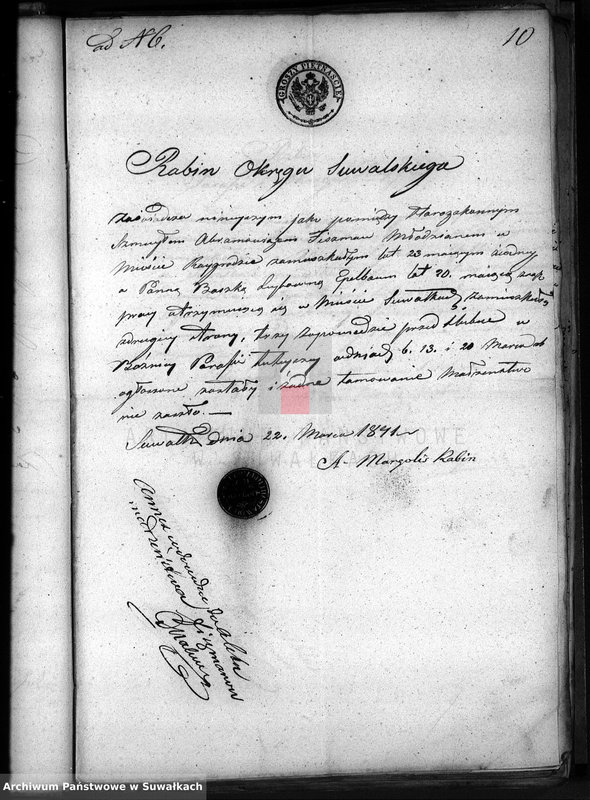 ad N 6.
10
GROSZY PIETNAŚCIE
Rabin Okręgu Suwalskiego
zaświadcza niniejszym jako pomiędzy Starozakonnym
Szmuyłem Abramowiczem Fiszman Młodzianem w
Mieście Raygrodzie zamieszkałym lat 23 mającym z jedney
a Panną Baszką Leybowną Gelbaum lat 20. mającą z
pracy utrzymującą się w Mieście Suwałkach zamieszkałą
z drugiey strony, trzy zapowiedzie przed Ślubne w
Bóżnicy Parafii tuteyszey w dniach 6. 13. i 20 Marca rb
ogłoszone zostały i żadne tamowanie Małżeństwa
nie zaszło. —
Suwałki dnia 22. Marca 1841 r
A Margolis Rabin
Annex dowodu do Aktu
małżeństwa Fiszmanów
ARCHIWUM PAŃSTWOWE
W SUWAŁKACH
Archiwum Państwowe w Suwałkach